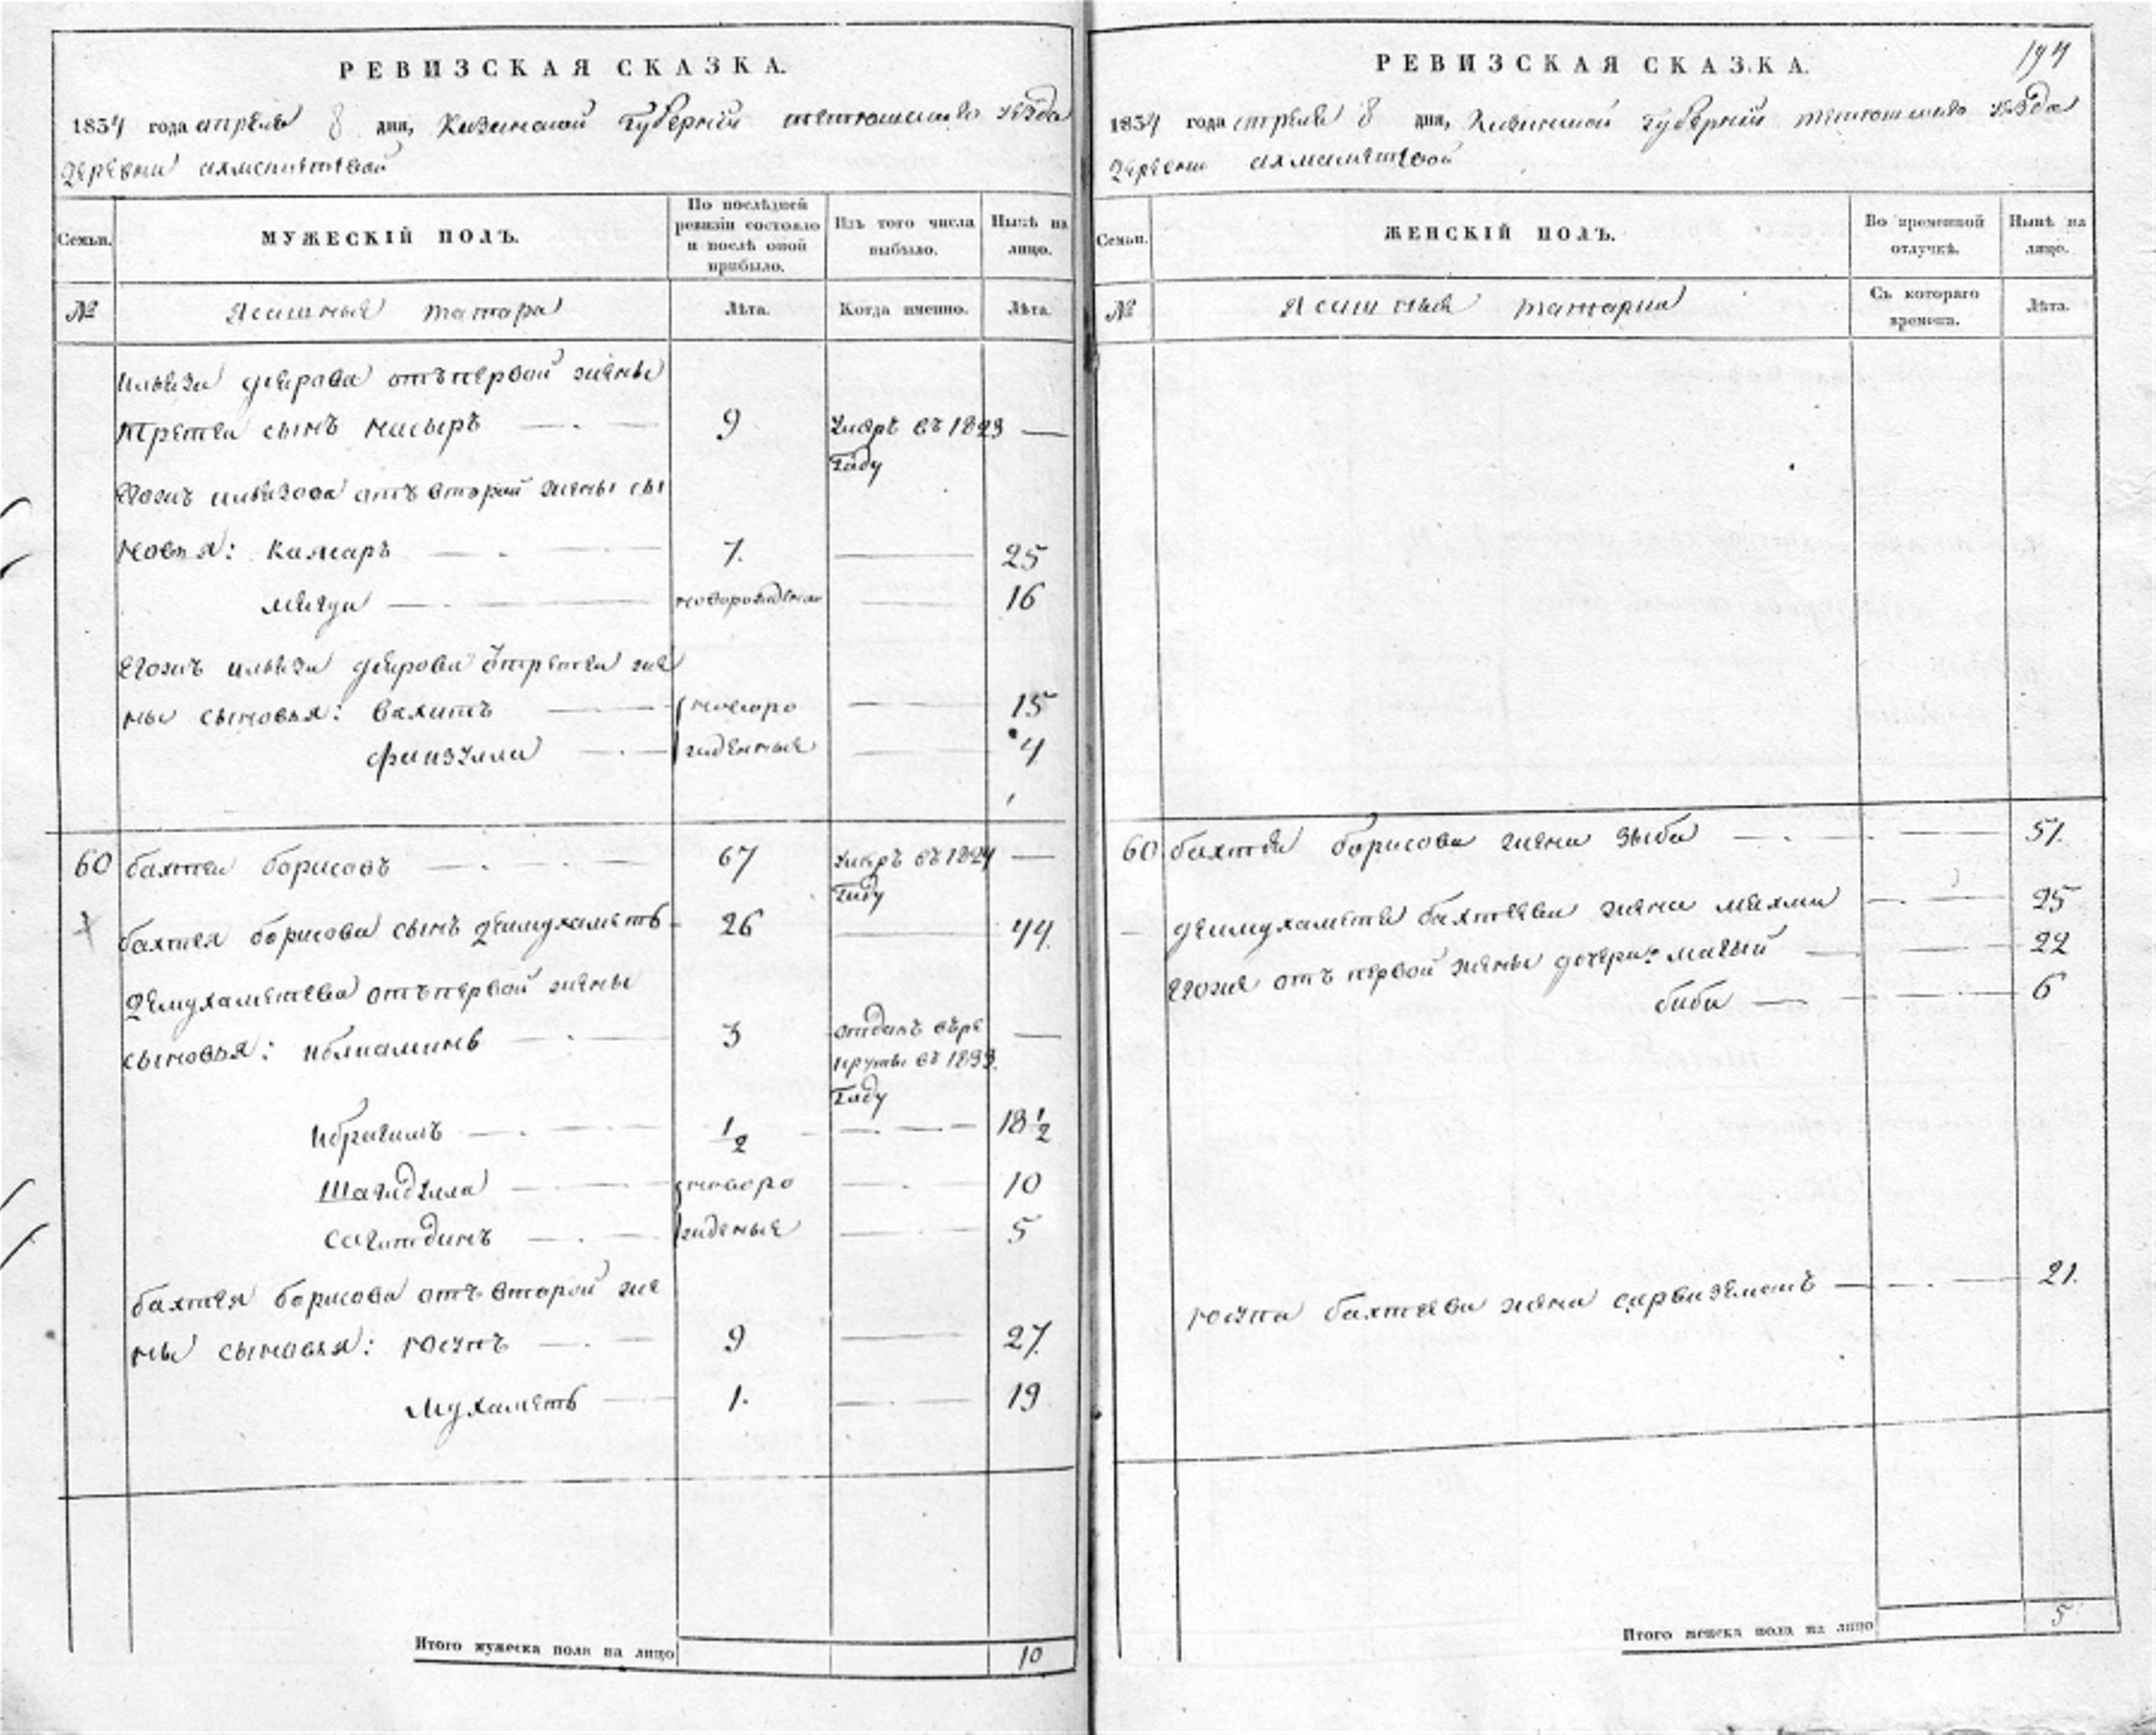 РЕВИЗСКАЯ СКАЗКА.
1834 года апреля 8 дня, Казанской Губернiи тетюшскаго уѣзда
деревни ахмаметевой
Семьи.
МУЖЕСКIЙ ПОЛЪ.
По послѣдней ревизiи состояло и послѣ оной прибыло.
Изъ того числа выбыло.
Нынѣ на лицо.
№
Ясашныя татара
Лѣта.
Когда именно.
Лѣта.
отъ первой жены
третей сынъ насыръ — 9 умеръ въ 1823 —
Году
отъ второй жены сы
новья: камаръ — 7. — 25
— новорожденной — 16
отъ третей же
ны сыновья: вахитъ — новоро — 15
файзулла — жденныя — 4
60 бахтей борисовъ — 67 умеръ въ 1824 —
Году
бахтея борисова сынъ демухаметъ — 26 — 44.
демухаметева отъ первой жены
сыновья: ибнаминъ — 3 отданъ въ ре —
круты въ 1833.
Году
ибрагимъ — 1/2 — 18 1/2
Шагидулла — новоро — 10
сагитдинъ — жденыя — 5
бахтея борисова отъ второй же
ны сыновья: юсупъ — 9 — 27.
мухаметъ — 1. — 19
Итого мужеска пола на лицо 10
РЕВИЗСКАЯ СКАЗКА.
194
1834 года апреля 8 дня, Казанской Губернiи тетюшскаго уѣзда
деревни ахмаметевой
Семьи.
ЖЕНСКIЙ ПОЛЪ.
Во временной отлучкѣ.
Нынѣ на лицо.
№
Ясашныя татарки
Съ котораго времени.
Лѣта.
60 бахтея борисова жена зыба — 51.
демухаметя бахтеева жена — 25
егоже отъ первой жены дочери: — 22
биби — 6
юсупа бахтеева жена сарвиземалъ — 21.
Итого женска пола на лицо 5